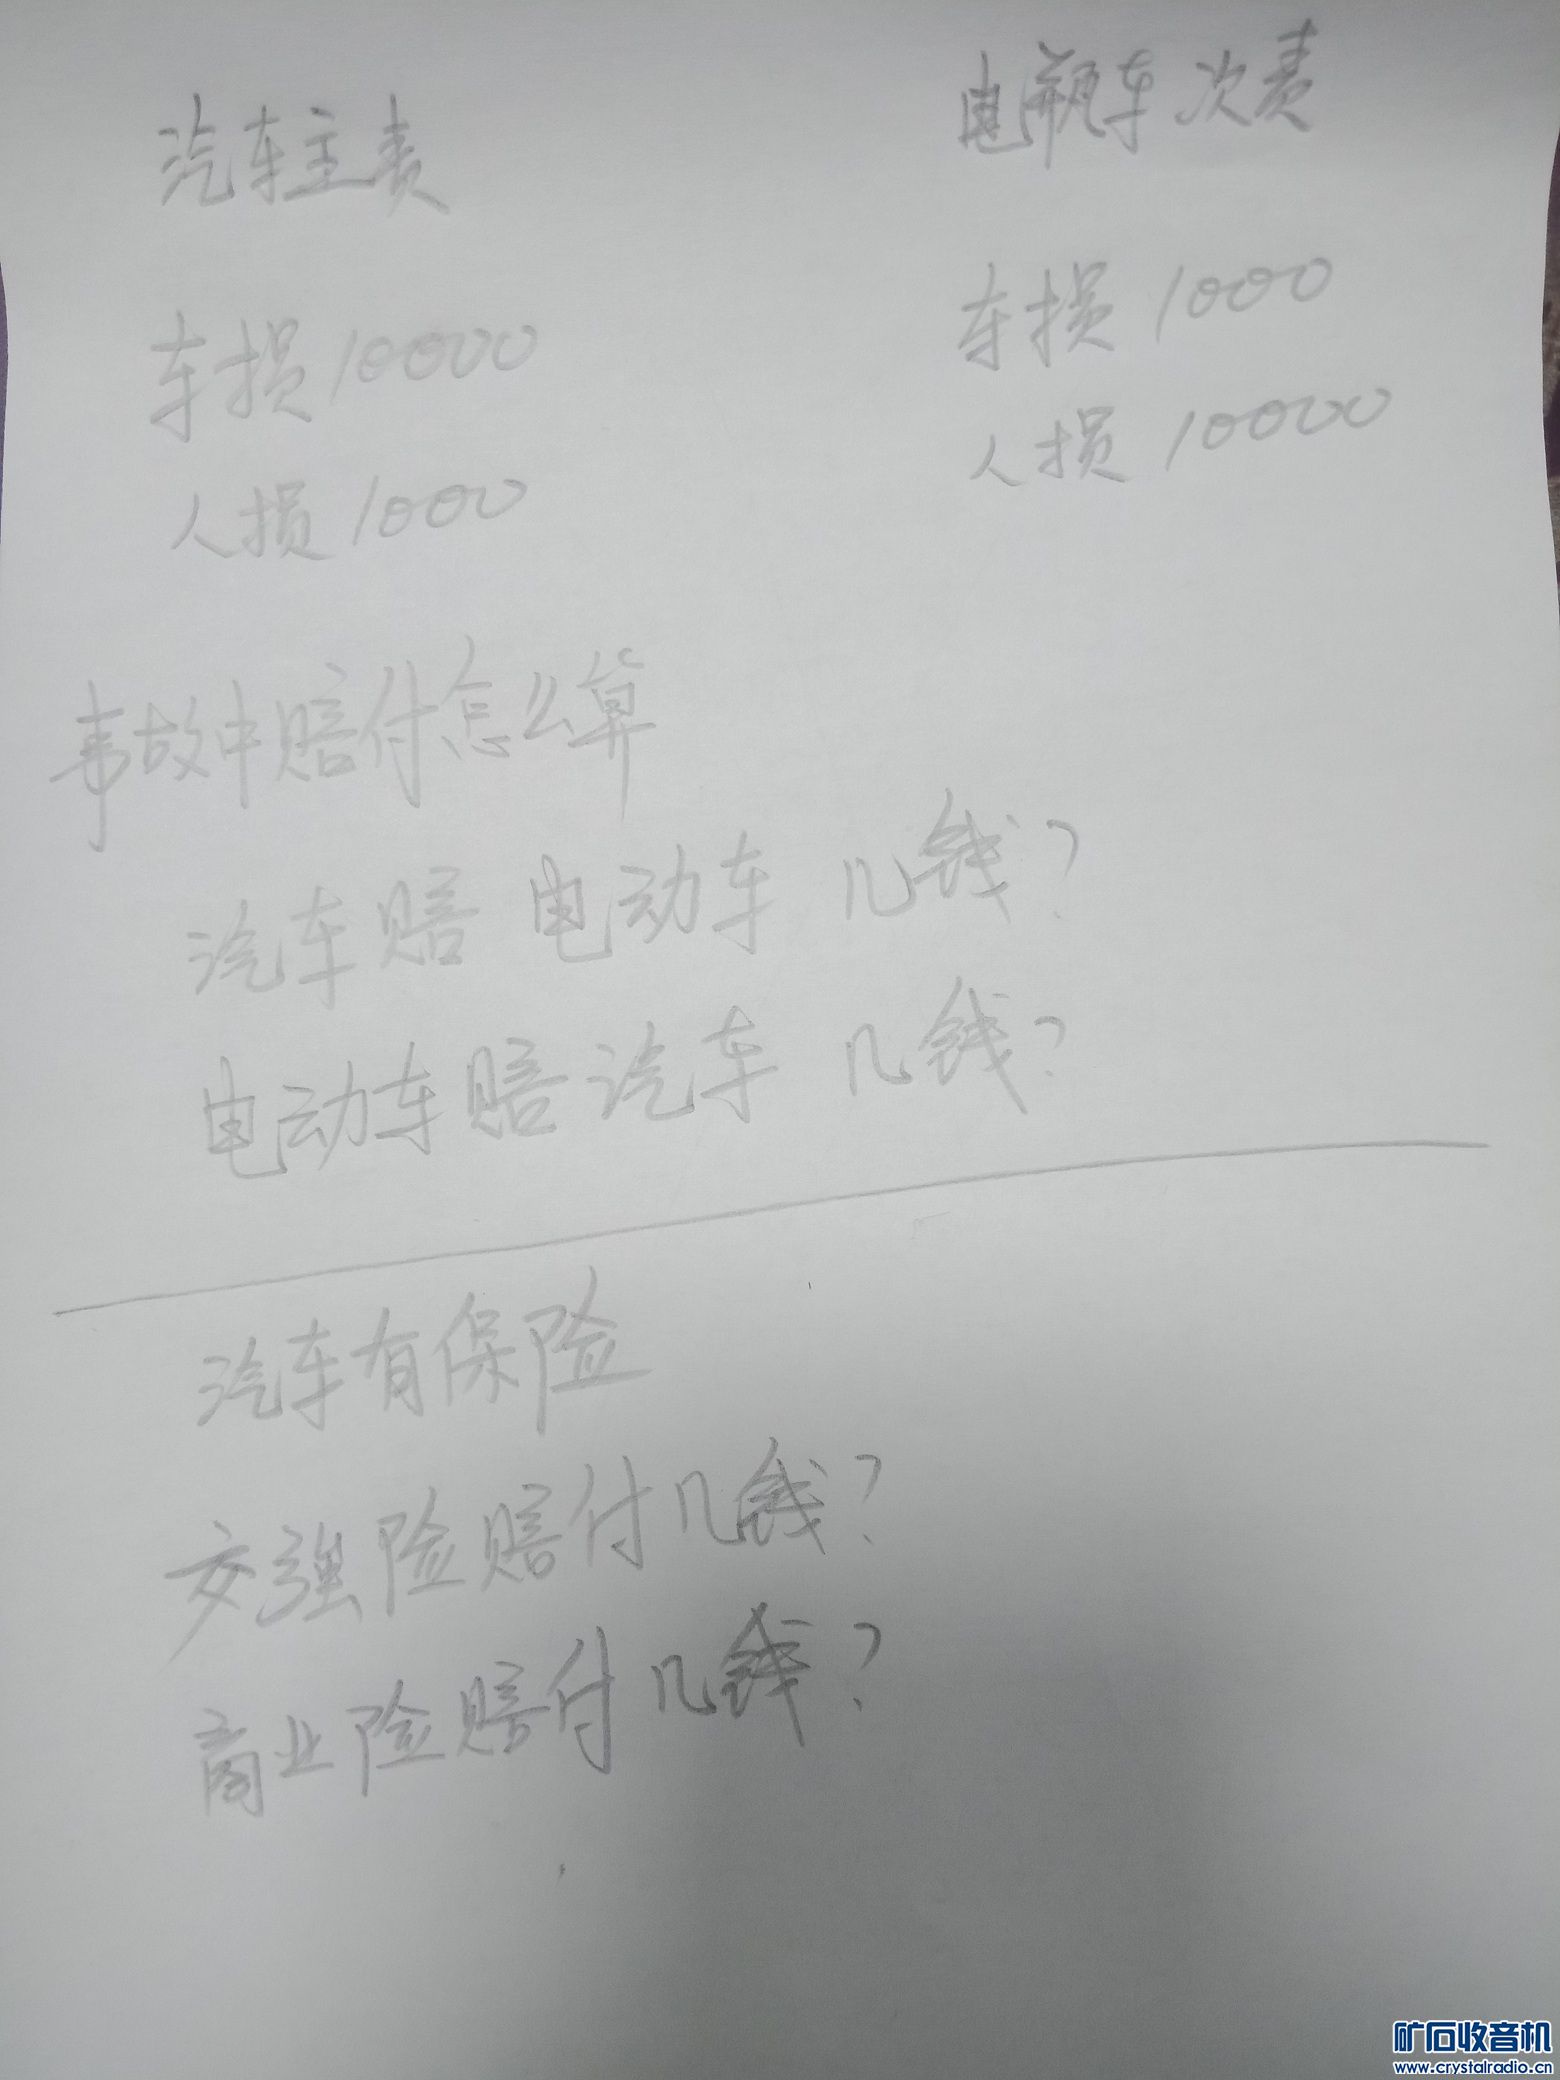 汽车主责
电瓶车 次责
车损10000
车损 1000
人损1000
人损 10000
事故中赔付怎么算
汽车赔 电动车 几钱?
电动车赔汽车 几钱?
汽车有保险
交强险赔付几钱?
商业险赔付几钱?
矿石收音机
www.crystalradio.cn